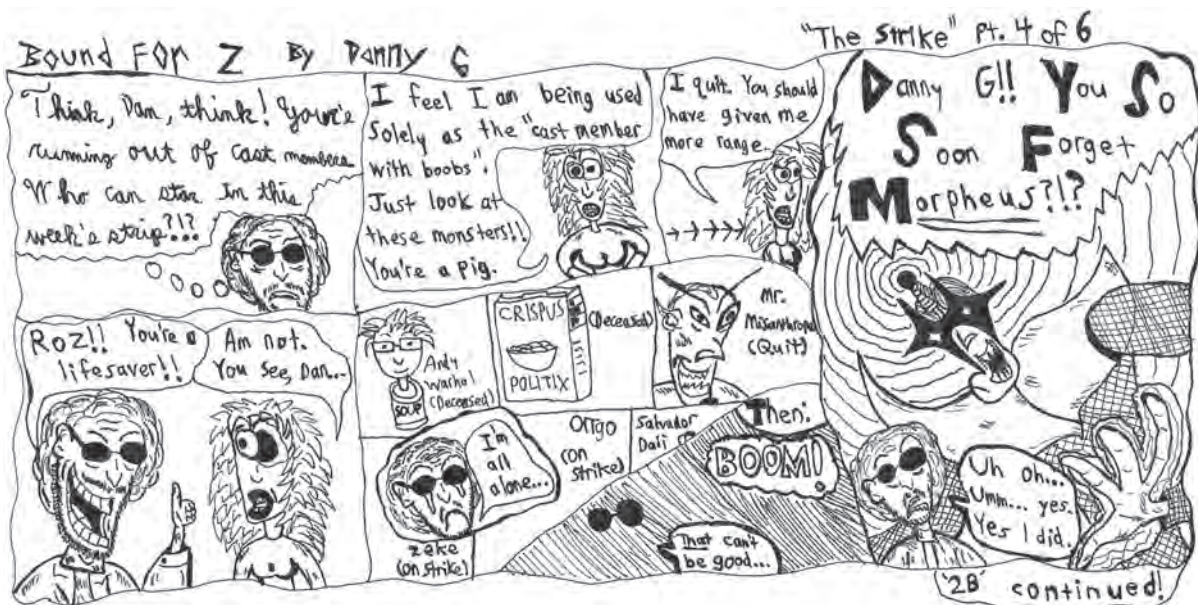 Bound For Z By Danny G
"The Strike" Pt. 4 of 6
Think, Dan, think! You're
running out of cast members
Who can star in this
week's strip?!?
Roz!! You're a
lifesaver!!
Am not.
You see, Dan...
I feel I am being used
solely as the "cast member
with boobs".
Just look at
these monsters!!
You're a pig.
I quit. You should
have given me
more range.
Andy
Warhol
(Deceased)
SOUP
CRISPUS
POLITIX
(Deceased)
Mr.
Misanthrope
(Quit)
I'm
all
alone...
Zeke
(on strike)
Ortgo
(on
strike)
Salvador
Dali
Then:
BOOM!
That can't
be good...
Danny G!! You So
Soon Forget
Morpheus?!?
Uh oh...
Umm... yes.
Yes I did.
'2B' continued!